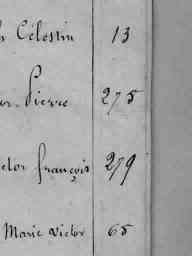 Célestin 13
Pierre 275
François 279
Marie Victor 65